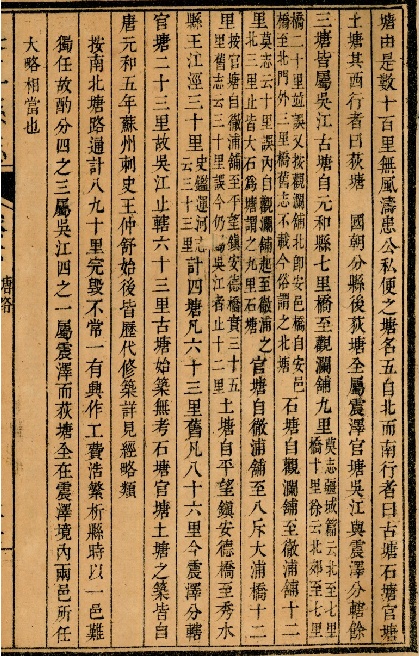 塘由是數十百里無風濤患公私便之塘名五自北而南行者曰古塘石塘官塘
土塘其西行者曰荻塘 國朝分縣後荻塘全屬震澤官塘吳江與震澤分轄餘
三塘皆屬吳江古塘自元和縣七里橋至觀瀾舖九里莫志疆域篇云北至七里橋十里徐云北郊至七里
橋二十里並誤又按觀瀾舖北卽安邑橋自安邑橋至北門外三里橋舊志不載今俗謂之北塘 石塘自觀瀾舖至徹浦舖十二
里莫志云十里誤內自觀瀾舖起至徹浦之北三里止皆大石爲塘謂之九里石塘官塘自徹浦舖至八斥大浦橋十二
里按官塘自徹浦舖至平望鎭安德橋實三十五里舊志云三十里誤今仍屬吳江者止十二里土塘自平望鎭安德橋至秀水
縣王江涇三十里史鑑運河志云三十三里計四塘凡六十三里舊凡八十六里今震澤分轄
官塘二十三里故吳江止轄六十三里古塘始築無考石塘官塘土塘之築皆自
唐元和五年蘇州刺史王仲舒始後皆歷代修築詳見經略類
按南北塘路通計八九十里完毀不常一有興作工費浩繁析縣時以一邑難
獨任故酌分四之三屬吳江四之一屬震澤而荻塘全在震澤境內兩邑所任
大略相當也
塘路